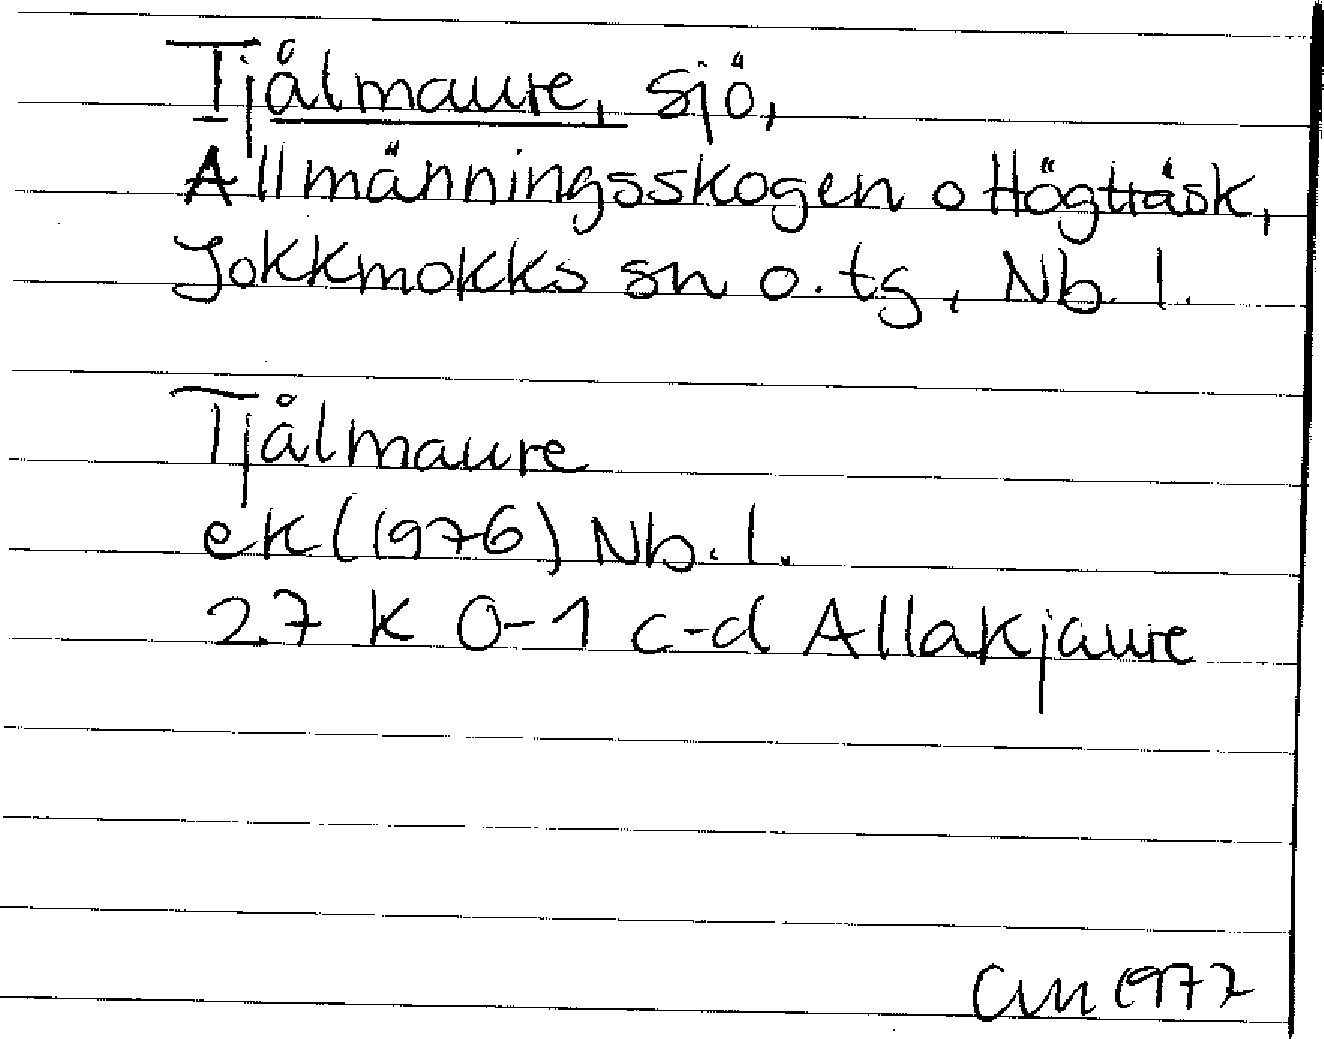 Tjålmaure, sjö,
Allmänningsskogen o Högträsk,
Jokkmokks sn o. tg, Nb. l.
Tjålmaure
ek (1976) Nb. l.
27 K 0-1 c-d Allakjaure
1977